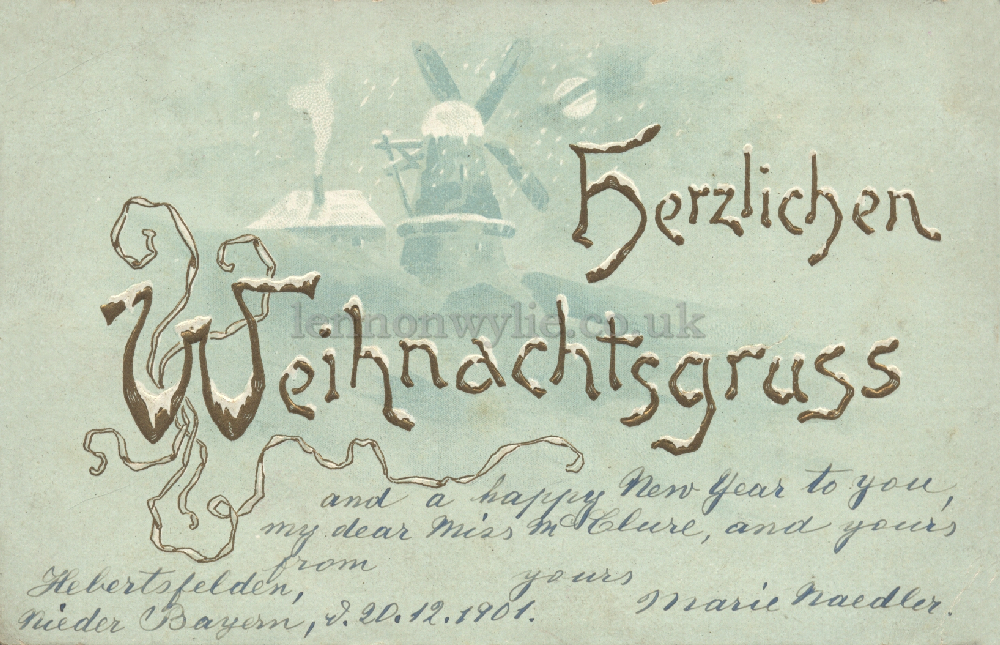 Herzlichen
Weihnachtsgruss
lennonwylie.co.uk
and a happy New Year to you,
my dear Miss McClure, and yours
from yours
Hebertsfelden, Marie Naedler.
Nieder Bayern, d. 20.12.1901.